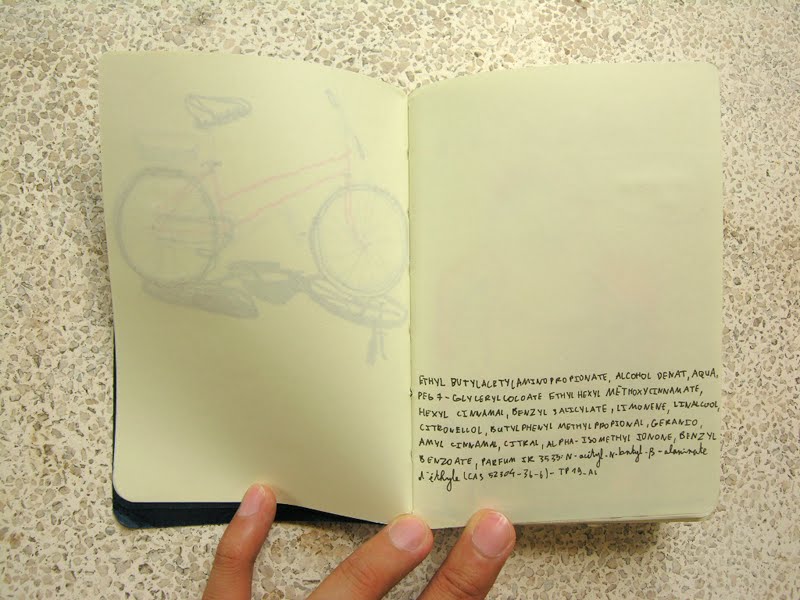 ETHYL BUTYLACETYLAMINOPROPIONATE, ALCOHOL DENAT, AQUA,
PEG 7 - GLYCERYLCOCOATE ETHYL HEXYL METHOXYCINNAMATE,
HEXYL CINNAMAL, BENZYL SALICYLATE, LIMONENE, LINALCOOL,
CITRONELLOL, BUTYLPHENYL METHYLPROPIONAL, GERANIO,
AMYL CINNAMAL, CITRAL, ALPHA-ISOMETHYL IONONE, BENZYL
BENZOATE, PARFUM IR 3535: N-acétyl-N-butyl-β-alaninate
d'éthyle (CAS 52304-36-6) - TP 19_AL